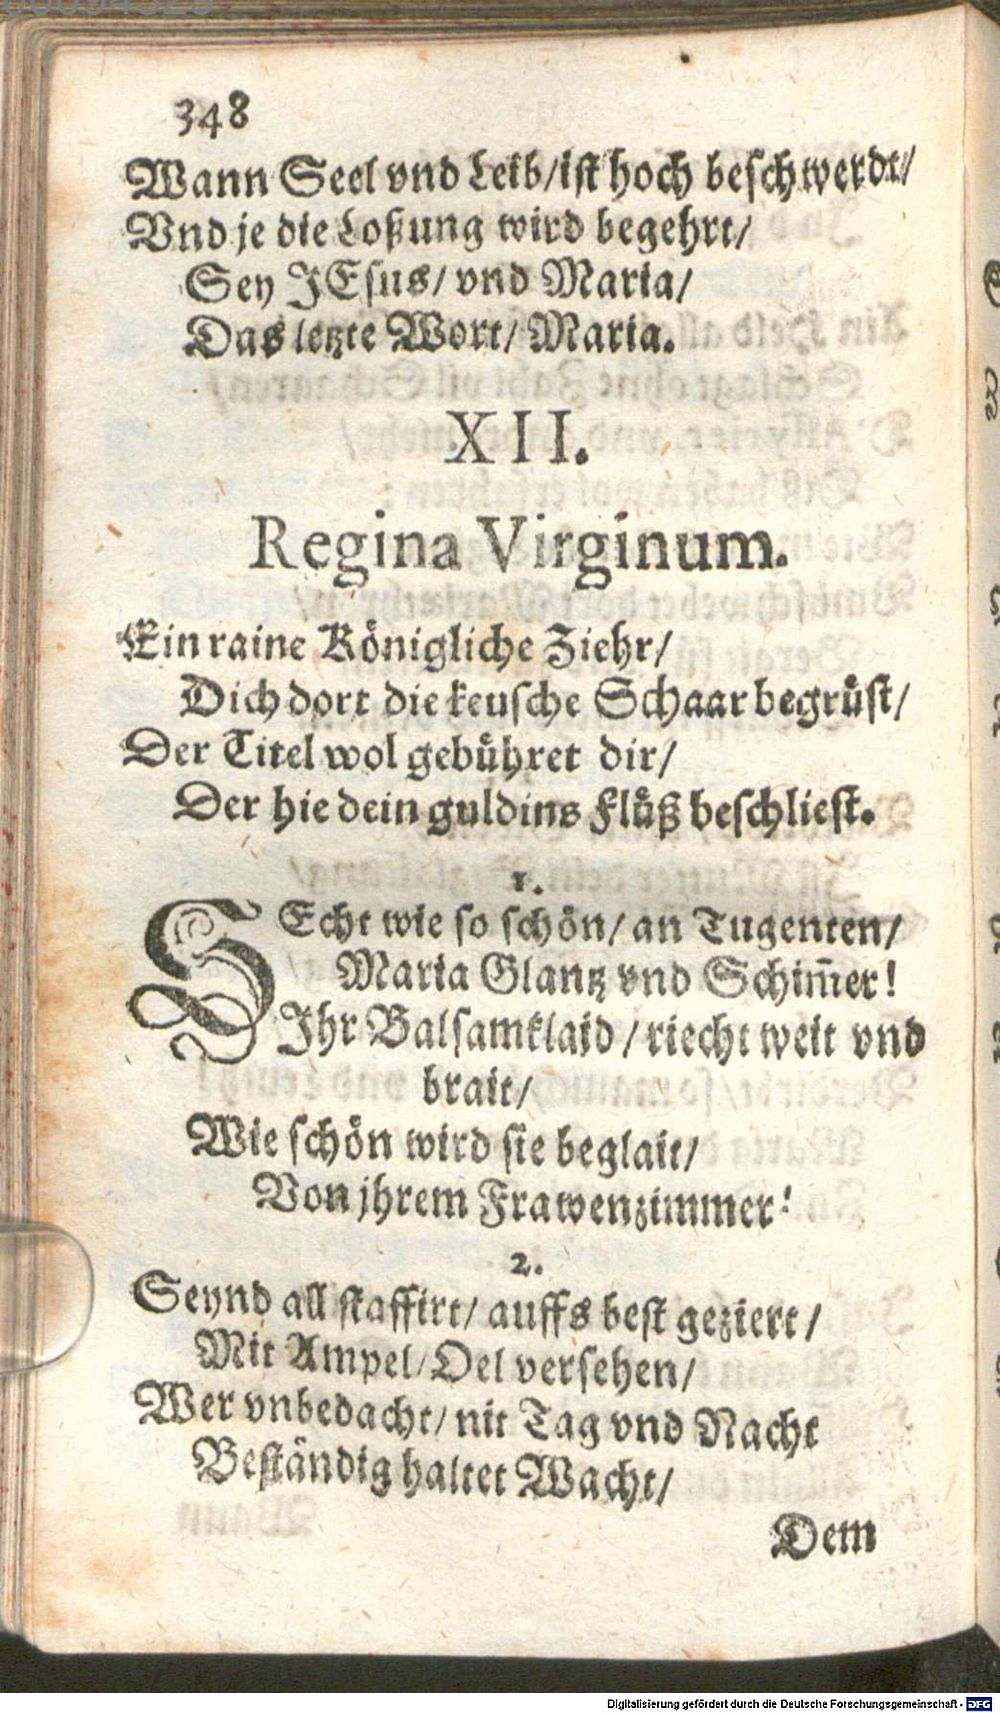 348
Wann Seel vnd Leib/ist hoch beschwerdt/
Vnd je die Loßung wird begehrt/
Sey JEsus/ vnd Maria/
Das letzte Wort/ Maria.
XII.
Regina Virginum.
Ein raine Königliche Ziehr/
Dich dort die keusche Schaar begrüst/
Der Titel wol gebühret dir/
Der hie dein guldins Flüß beschliest.
1.
SEcht wie so schön/ an Tugenten/
Maria Glantz vnd Schim̃er!
Ihr Balsamklaid/ riecht weit vnd
brait/
Wie schön wird sie beglait/
Von jhrem Frawenzimmer!
2.
Seynd all staffirt/ auffs best geziert/
Mit Ampel/ Oel versehen/
Wer vnbedacht/ nit Tag vnd Nacht
Beständig haltet Wacht/
Dem
Digitalisierung gefördert durch die Deutsche Forschungsgemeinschaft - DFG